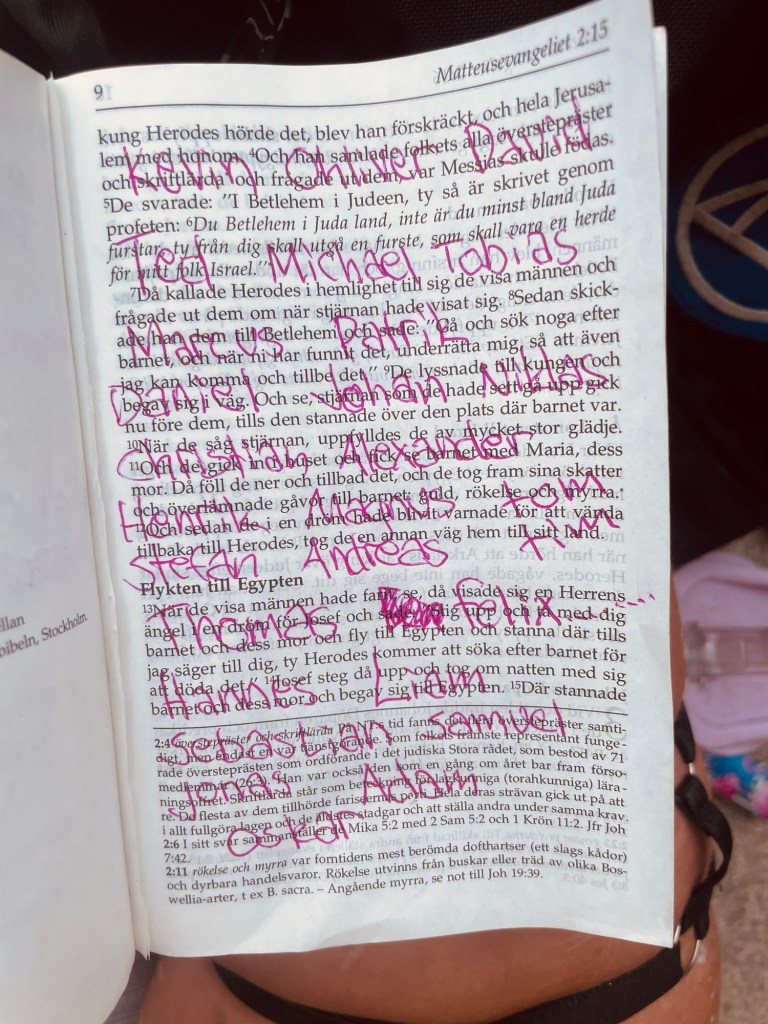 9
Matteusevangeliet 2:15
kung Herodes hörde det, blev han förskräckt, och hela Jerusa-
lem med honom. ⁴Och han samlade folkets alla överstepräster
och skriftlärda och frågade ut dem, var Messias skulle födas.
⁵De svarade: "I Betlehem i Judeen, ty så är skrivet genom
profeten: ⁶Du Betlehem i Juda land, inte är du minst bland Juda
furstar, ty från dig skall utgå en furste, som skall vara en herde
för mitt folk Israel."
⁷Då kallade Herodes i hemlighet till sig de visa männen och
frågade ut dem om när stjärnan hade visat sig. ⁸Sedan skick-
ade han dem till Betlehem och sade: "Gå och sök noga efter
barnet, och när ni har funnit det, underrätta mig, så att även
jag kan komma och tillbe det." ⁹De lyssnade till kungen och
begav sig i väg. Och se, stjärnan som de hade sett gå upp gick
nu före dem, tills den stannade över den plats där barnet var.
¹⁰När de såg stjärnan, uppfylldes de av mycket stor glädje.
¹¹Och de gick in i huset och fick se barnet med Maria, dess
mor. Då föll de ner och tillbad det, och de tog fram sina skatter
och överlämnade gåvor till barnet: guld, rökelse och myrra.
¹²Och sedan de i en dröm hade blivit varnade för att vända
tillbaka till Herodes, tog de en annan väg hem till sitt land.
Flykten till Egypten
¹³När de visa männen hade farit, se, då visade sig en Herrens
ängel i en dröm för Josef och sade: "Stig upp och ta med dig
barnet och dess mor och fly till Egypten och stanna där tills
jag säger till dig, ty Herodes kommer att söka efter barnet för
att döda det." ¹⁴Josef steg då upp och tog om natten med sig
barnet och dess mor och begav sig till Egypten. ¹⁵Där stannade
2:4 överstepräster och skriftlärda På NT:s tid fanns det flera överstepräster samti-
digt, men endast en var tjänstgörande. Som folkets främste representant funge-
rade översteprästen som ordförande i det judiska Stora rådet, som bestod av 71
medlemmar (26:3). Han var också den som en gång om året bar fram förso-
ningsoffret. Skriftlärda står som beteckning för lagkunniga (torahkunniga) lära-
re. De flesta av dem tillhörde fariseernas parti. Hela deras strävan gick ut på att
i allt fullgöra lagen och de äldstes stadgar och att ställa andra under samma krav.
2:6 I sitt svar sammanställer de Mika 5:2 med 2 Sam 5:2 och 1 Krön 11:2. Jfr Joh
7:42.
2:11 rökelse och myrra var forntidens mest berömda dofthartser (ett slags kådor)
och dyrbara handelsvaror. Rökelse utvinns från buskar eller träd av olika Bos-
wellia-arter, t ex B. sacra. – Angående myrra, se not till Joh 19:39.
Kevin Oliver David
Ted Michael Tobias
Marcus Patrik
Daniel Johan Niklas
Christian Alexander
Henrik Magnus Tom
Stefan Andreas Tim
Thomas Felix
Hannes Liam
Sebastian Samuel
Jonas Adam
Oskar
bibeln, Stockholm.